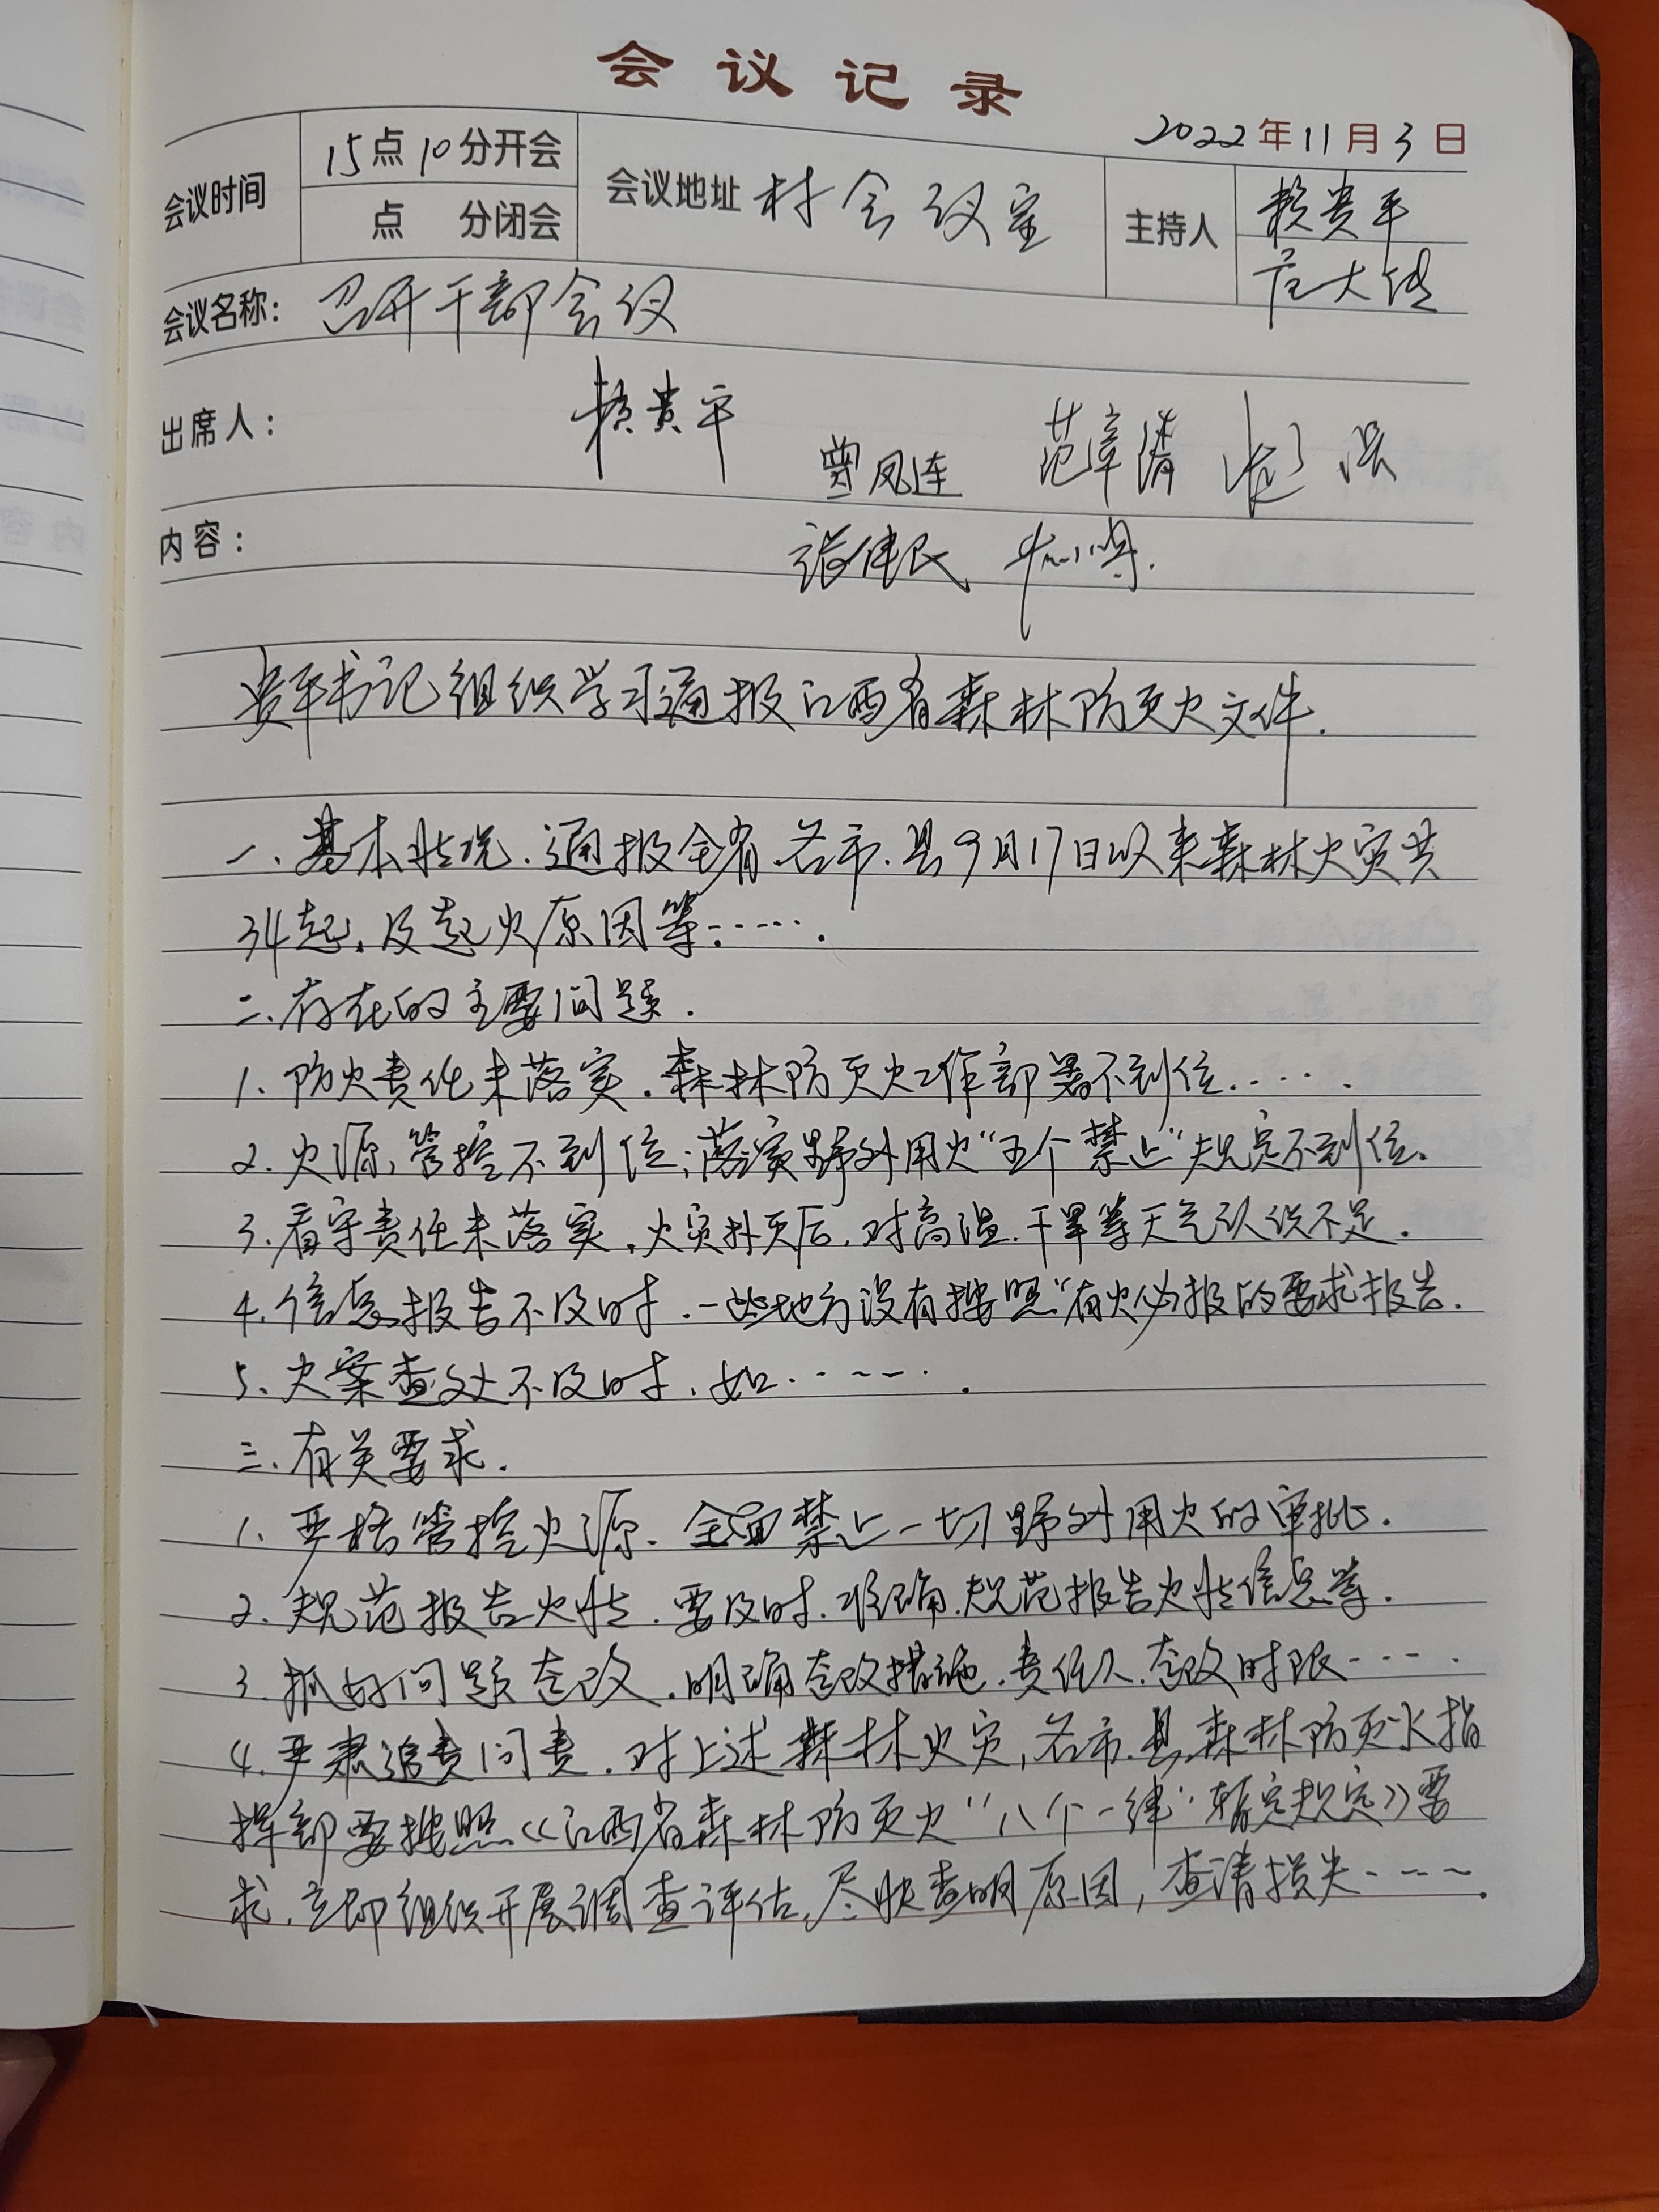 会议记录
2022年11月3日
会议时间 15点10分开会 会议地址 村会议室 主持人 赖贵平
点 分闭会
会议名称: 召开干部会议
出席人: 赖贵平
曾凤连 范章清
内容: 张伟民
贵平书记组织学习通报江西省森林防灭火文件.
一、基本情况.通报全省各市.县9月17日以来森林火灾共
34起.及起火原因等:…….
二.存在的主要问题.
1.防火责任未落实.森林防灭火工作部署不到位……
2.火源管控不到位;落实野外用火“五个禁止”规定不到位.
3.看守责任未落实.火灾扑灭后.对高温.干旱等天气认识不足.
4.信息报告不及时.一些地方没有按照“有火必报的要求报告.
5.火案查处不及时.如…….
三.有关要求.
1.严格管控火源.全面禁止一切野外用火的审批.
2.规范报告火情.要及时.准确.规范报告火情信息等.
3.抓好问题整改.明确整改措施.责任人.整改时限……
4.严肃追责问责.对上述森林火灾,各市.县.森林防灭火指
挥部要按照《江西省森林防灭火“八个一律”暂定规定》要
求.立即组织开展调查评估.尽快查明原因,查清损失…….